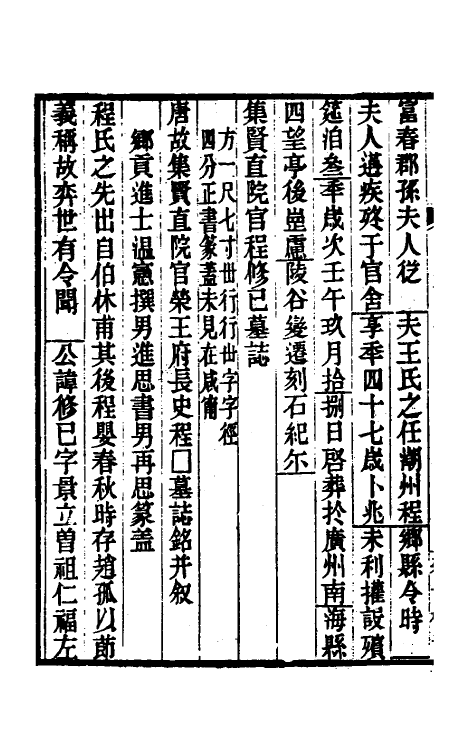 富春郡孫夫人從　夫王氏之任潮州程鄉縣令時
夫人遘疾殁于官舍享秊四十七歲卜兆未利攉設殯
筵洎叁秊歲次壬午玖月拾捌日啓葬扵廣州南海縣
四望亭後崗慮陵谷變遷刻石紀尒
集賢直院官程修已墓誌
方一尺七寸卅行行卅字字徑
四分正書篆蓋未見在咸甯
唐故集賢直院官榮王府長史程□墓誌銘并叙
鄉貢進士温憲撰男進思書男再思篆蓋
程氏之先出自伯休甫其後程嬰春秋時存趙孤以節
義稱故弈世有令聞　公諱修已字景立曽祖仁福左